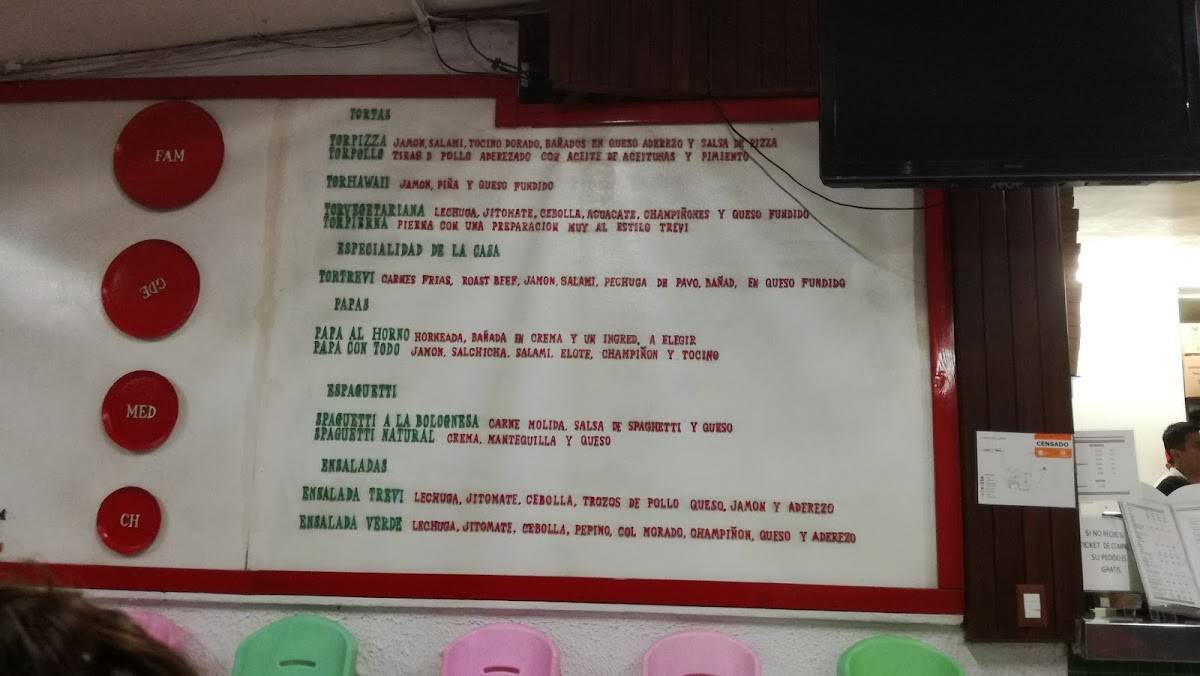 FAM
GDE
MED
CH
TORTAS
TORPIZZA JAMON, SALAMI, TOCINO DORADO, BAÑADOS EN QUESO ADEREZO Y SALSA DE PIZZA
TORPOLLO TIRAS D POLLO ADEREZADO CON ACEITE DE ACEITUNAS Y PIMIENTO
TORHAWAII JAMON, PIÑA Y QUESO FUNDIDO
TORVEGETARIANA LECHUGA, JITOMATE, CEBOLLA, AGUACATE, CHAMPIÑONES Y QUESO FUNDIDO
TORPIERNA PIERNA CON UNA PREPARACION MUY AL ESTILO TREVI
ESPECIALIDAD DE LA CASA
TORTREVI CARNES FRIAS, ROAST BEEF, JAMON, SALAMI, PECHUGA DE PAVO, BAÑAD, EN QUESO FUNDIDO
PAPAS
PAPA AL HORNO HORNEADA, BAÑADA EN CREMA Y UN INGRED, A ELEGIR
PAPA CON TODO JAMON, SALCHICHA, SALAMI, ELOTE, CHAMPIÑON Y TOCINO
ESPAGUETTI
SPAGUETTI A LA BOLOGNESA CARNE MOLIDA, SALSA DE SPAGHETTI Y QUESO
SPAGUETTI NATURAL CREMA, MANTEQUILLA Y QUESO
ENSALADAS
ENSALADA TREVI LECHUGA, JITOMATE, CEBOLLA, TROZOS DE POLLO QUESO, JAMON Y ADEREZO
ENSALADA VERDE LECHUGA, JITOMATE, CEBOLLA, PEPINO, COL MORADO, CHAMPIÑON, QUESO Y ADEREZO
CENSADO
SI NO RECIBE SU
TICKET DE COMPRA
SU PEDIDO ES
GRATIS